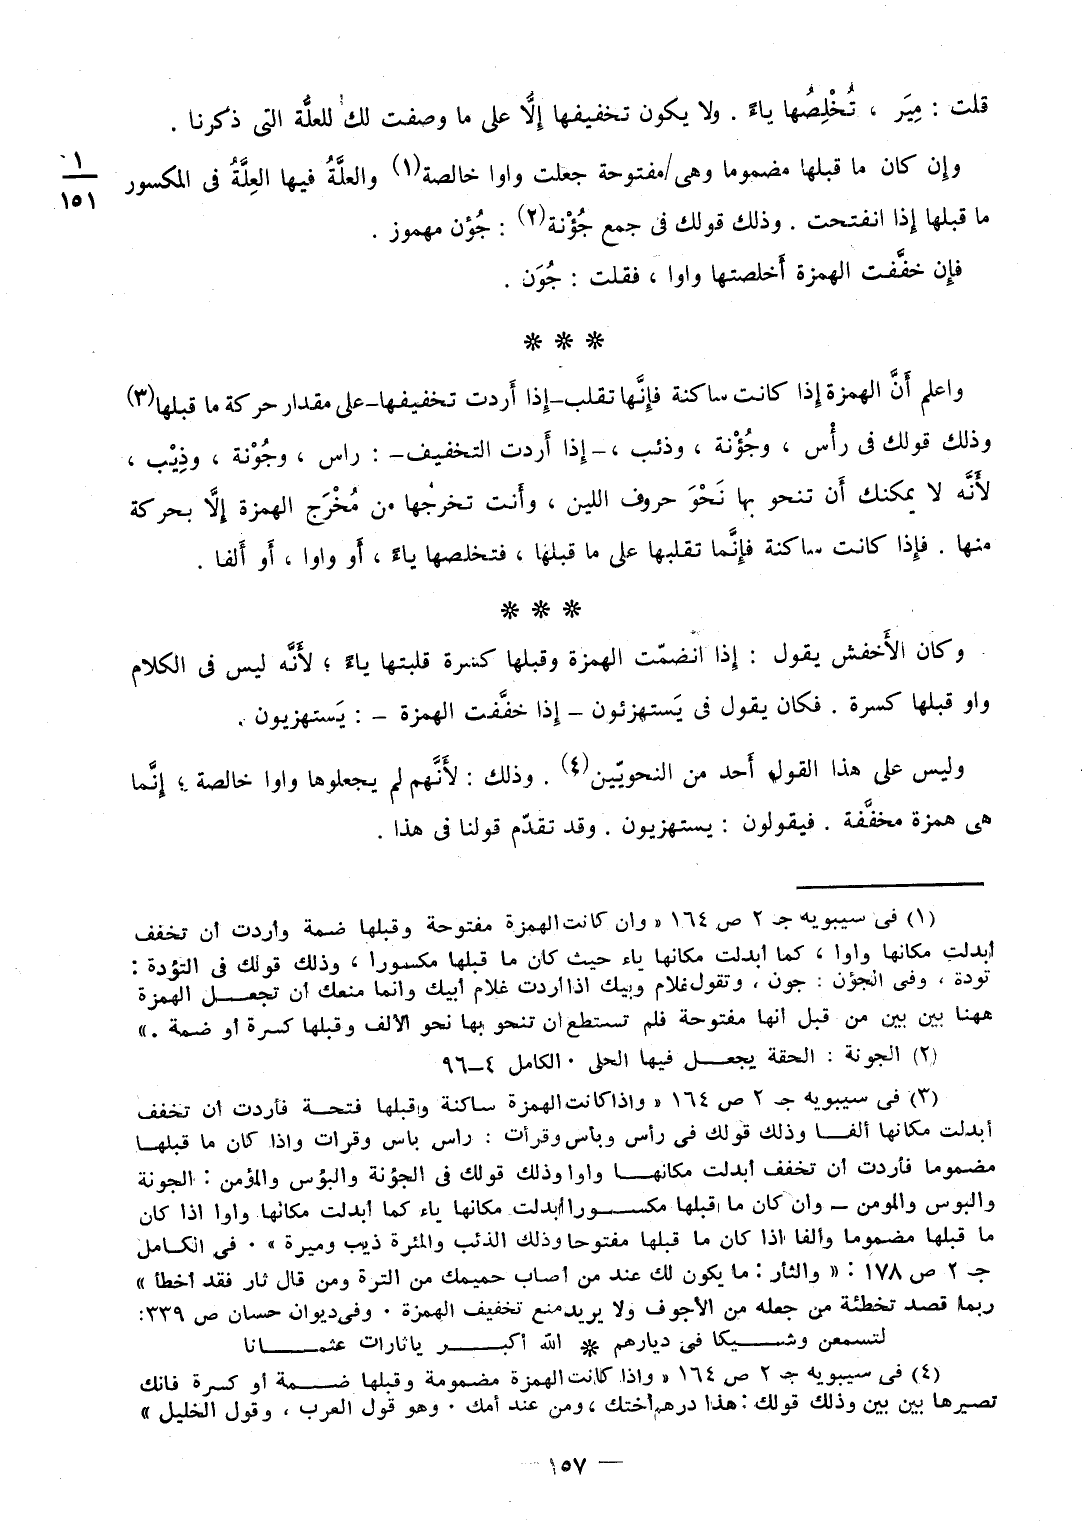 قلت : مِيَر ، تُخْلِصُها ياءً . ولا يكون تخفيفها إلَّا على ما وصفت لك للعلَّة التى ذكرنا .
وإن كان ما قبلها مضموما وهى/مفتوحة جعلت واوا خالصة(١) والعلَّةُ فيها العِلَّةُ فى المكسور
١
١٥١
ما قبلها إذا انفتحت . وذلك قولك فى جمع جُؤْنة(٢) : جُؤَن مهموز .
فإن خفَّفت الهمزة أخلصتها واوا ، فقلت : جُوَن .
* * *
واعلم أَنَّ الهمزة إذا كانت ساكنة فإنَّها تقلب–إذا أَردت تخفيفها–على مقدار حركة ما قبلها(٣)
وذلك قولك فى رأْس ، وجُؤْنة ، وذئب ، – إذا أَردت التخفيف– : راس ، وجُوْنة ، وذِيْب ،
لأَنَّه لا يمكنك أَن تنحو بها نَحْوَ حروف اللين ، وأَنت تخرجُها من مُخْرَج الهمزة إلَّا بحركة
منها . فإذا كانت ساكنة فإنَّما تقلبها على ما قبلها ، فتخلصها ياءً ، أَو واوا ، أَو ألفا .
* * *
وكان الأَخفش يقول : إذا انضمّت الهمزة وقبلها كسرة قلبتها ياءً ؛ لأَنَّه ليس فى الكلام
واو قبلها كسرة . فكان يقول فى يَستهزئون – إذا خفَّفت الهمزة – : يَستهزيون .
وليس على هذا القول أَحد من النحويّين(٤) . وذلك : لأَنَّهم لم يجعلوها واوا خالصة ؛ إنَّما
هى همزة مخفَّفة . فيقولون : يستهزيون . وقد تقدّم قولنا فى هذا .
(١) فى سيبويه جـ ٢ ص ١٦٤ « وان كانت الهمزة مفتوحة وقبلها ضمة وأردت أن تخفف
أبدلت مكانها واوا ، كما أبدلت مكانها ياء حيث كان ما قبلها مكسورا ، وذلك قولك فى التؤدة :
تودة ، وفى الجؤن : جون ، وتقول غلام وبيك اذا أردت غلام أبيك وانما منعك أن تجعـل الهمزة
ههنا بين بين من قبل أنها مفتوحة فلم تستطع أن تنحو بها نحو الألف وقبلها كسرة أو ضمة . »
(٢) الجونة : الحقة يجعـل فيها الحلى · الكامل ٤–٩٦
(٣) فى سيبويه جـ ٢ ص ١٦٤ « واذا كانت الهمزة ساكنة وقبلها فتحـة فأردت أن تخفف
أبدلت مكانها ألفـا وذلك قولك فى رأس وبأس وقرأت : راس باس وقرات واذا كان ما قبلهـا
مضموما فأردت أن تخفف أبدلت مكانهـا واوا وذلك قولك فى الجؤنة والبؤس والمؤمن : الجونة
والبوس والمومن – وان كان ما قبلها مكسـورا أبدلت مكانها ياء كما أبدلت مكانها واوا اذا كان
ما قبلها مضموما وألفا اذا كان ما قبلها مفتوحا وذلك الذئب والمئرة ذيب وميرة » · فى الكامل
جـ ٢ ص ١٧٨ : « والثأر : ما يكون لك عند من أصاب حميمك من الترة ومن قال ثار فقد أخطأ »
ربما قصد تخطئة من جعله من الأجوف ولا يريد منع تخفيف الهمزة · وفى ديوان حسان ص ٣٣٩:
لتسمعن وشـيكا فى ديارهم * الله أكبـر ياثارات عثمـانا
(٤) فى سيبويه جـ ٢ ص ١٦٤ « واذا كانت الهمزة مضمومة وقبلها ضـمة أو كسرة فانك
تصيرها بين بين وذلك قولك : هذا درهم أختك ، ومن عند أمك · وهو قول العرب ، وقول الخليل »
– ١٥٧ –